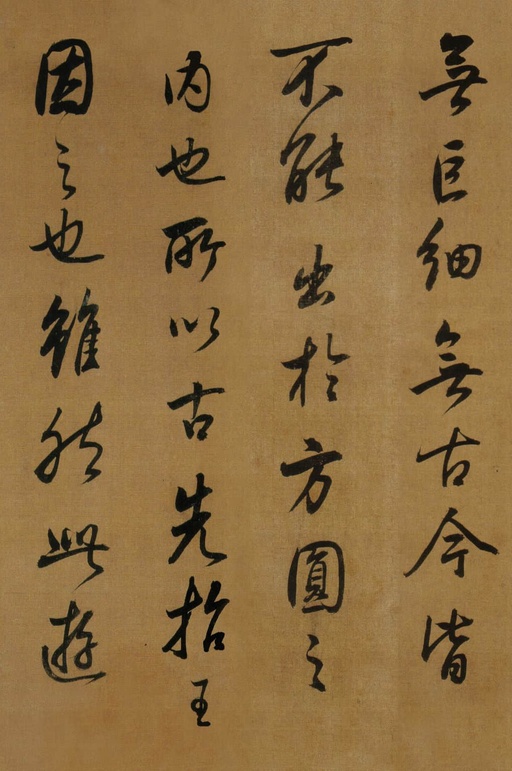 無巨細無古今皆
不能出於方圓之
内也所以古先哲王
因之也雖然此遊